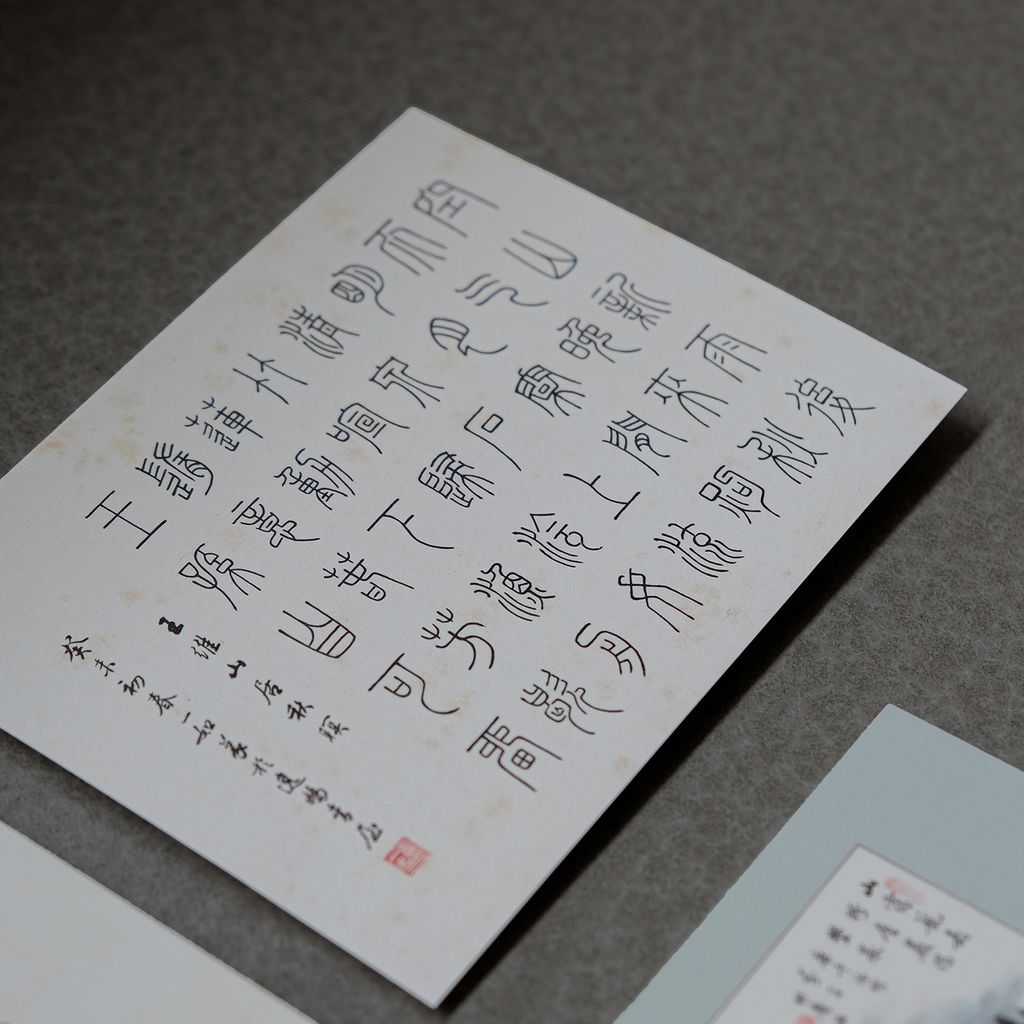 空山新雨後
天气晚來秋
明月松間照
清泉石上流
竹喧歸浣女
蓮動下漁舟
隨意春芳歇
王孫自可留
王維山居秋暝
癸未初春一如篆於逸書屋